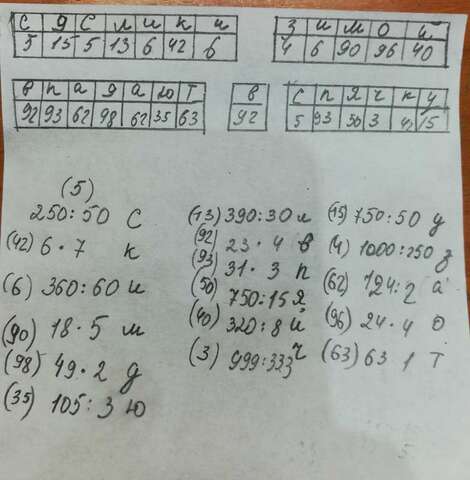 С у С л и к и   З и м о й
5 15 5 13 6 42 6   4 6 90 96 40
в п а д а ю т   в   С п я ч к у
92 93 62 98 62 35 63   92   5 93 50 3 42 15
(5)
250:50 С
(42) 6·7 к
(6) 360:60 и
(90) 18·5 м
(98) 49·2 д
(35) 105:3 ю
(13) 390:30 л
(92) 23·4 в
(93) 31·3 п
(50) 750:15 я
(40) 320:8 й
(3) 999:333 ч
(15) 750:50 у
(4) 1000:250 з
(62) 124:2 а
(96) 24·4 о
(63) 63 1 т